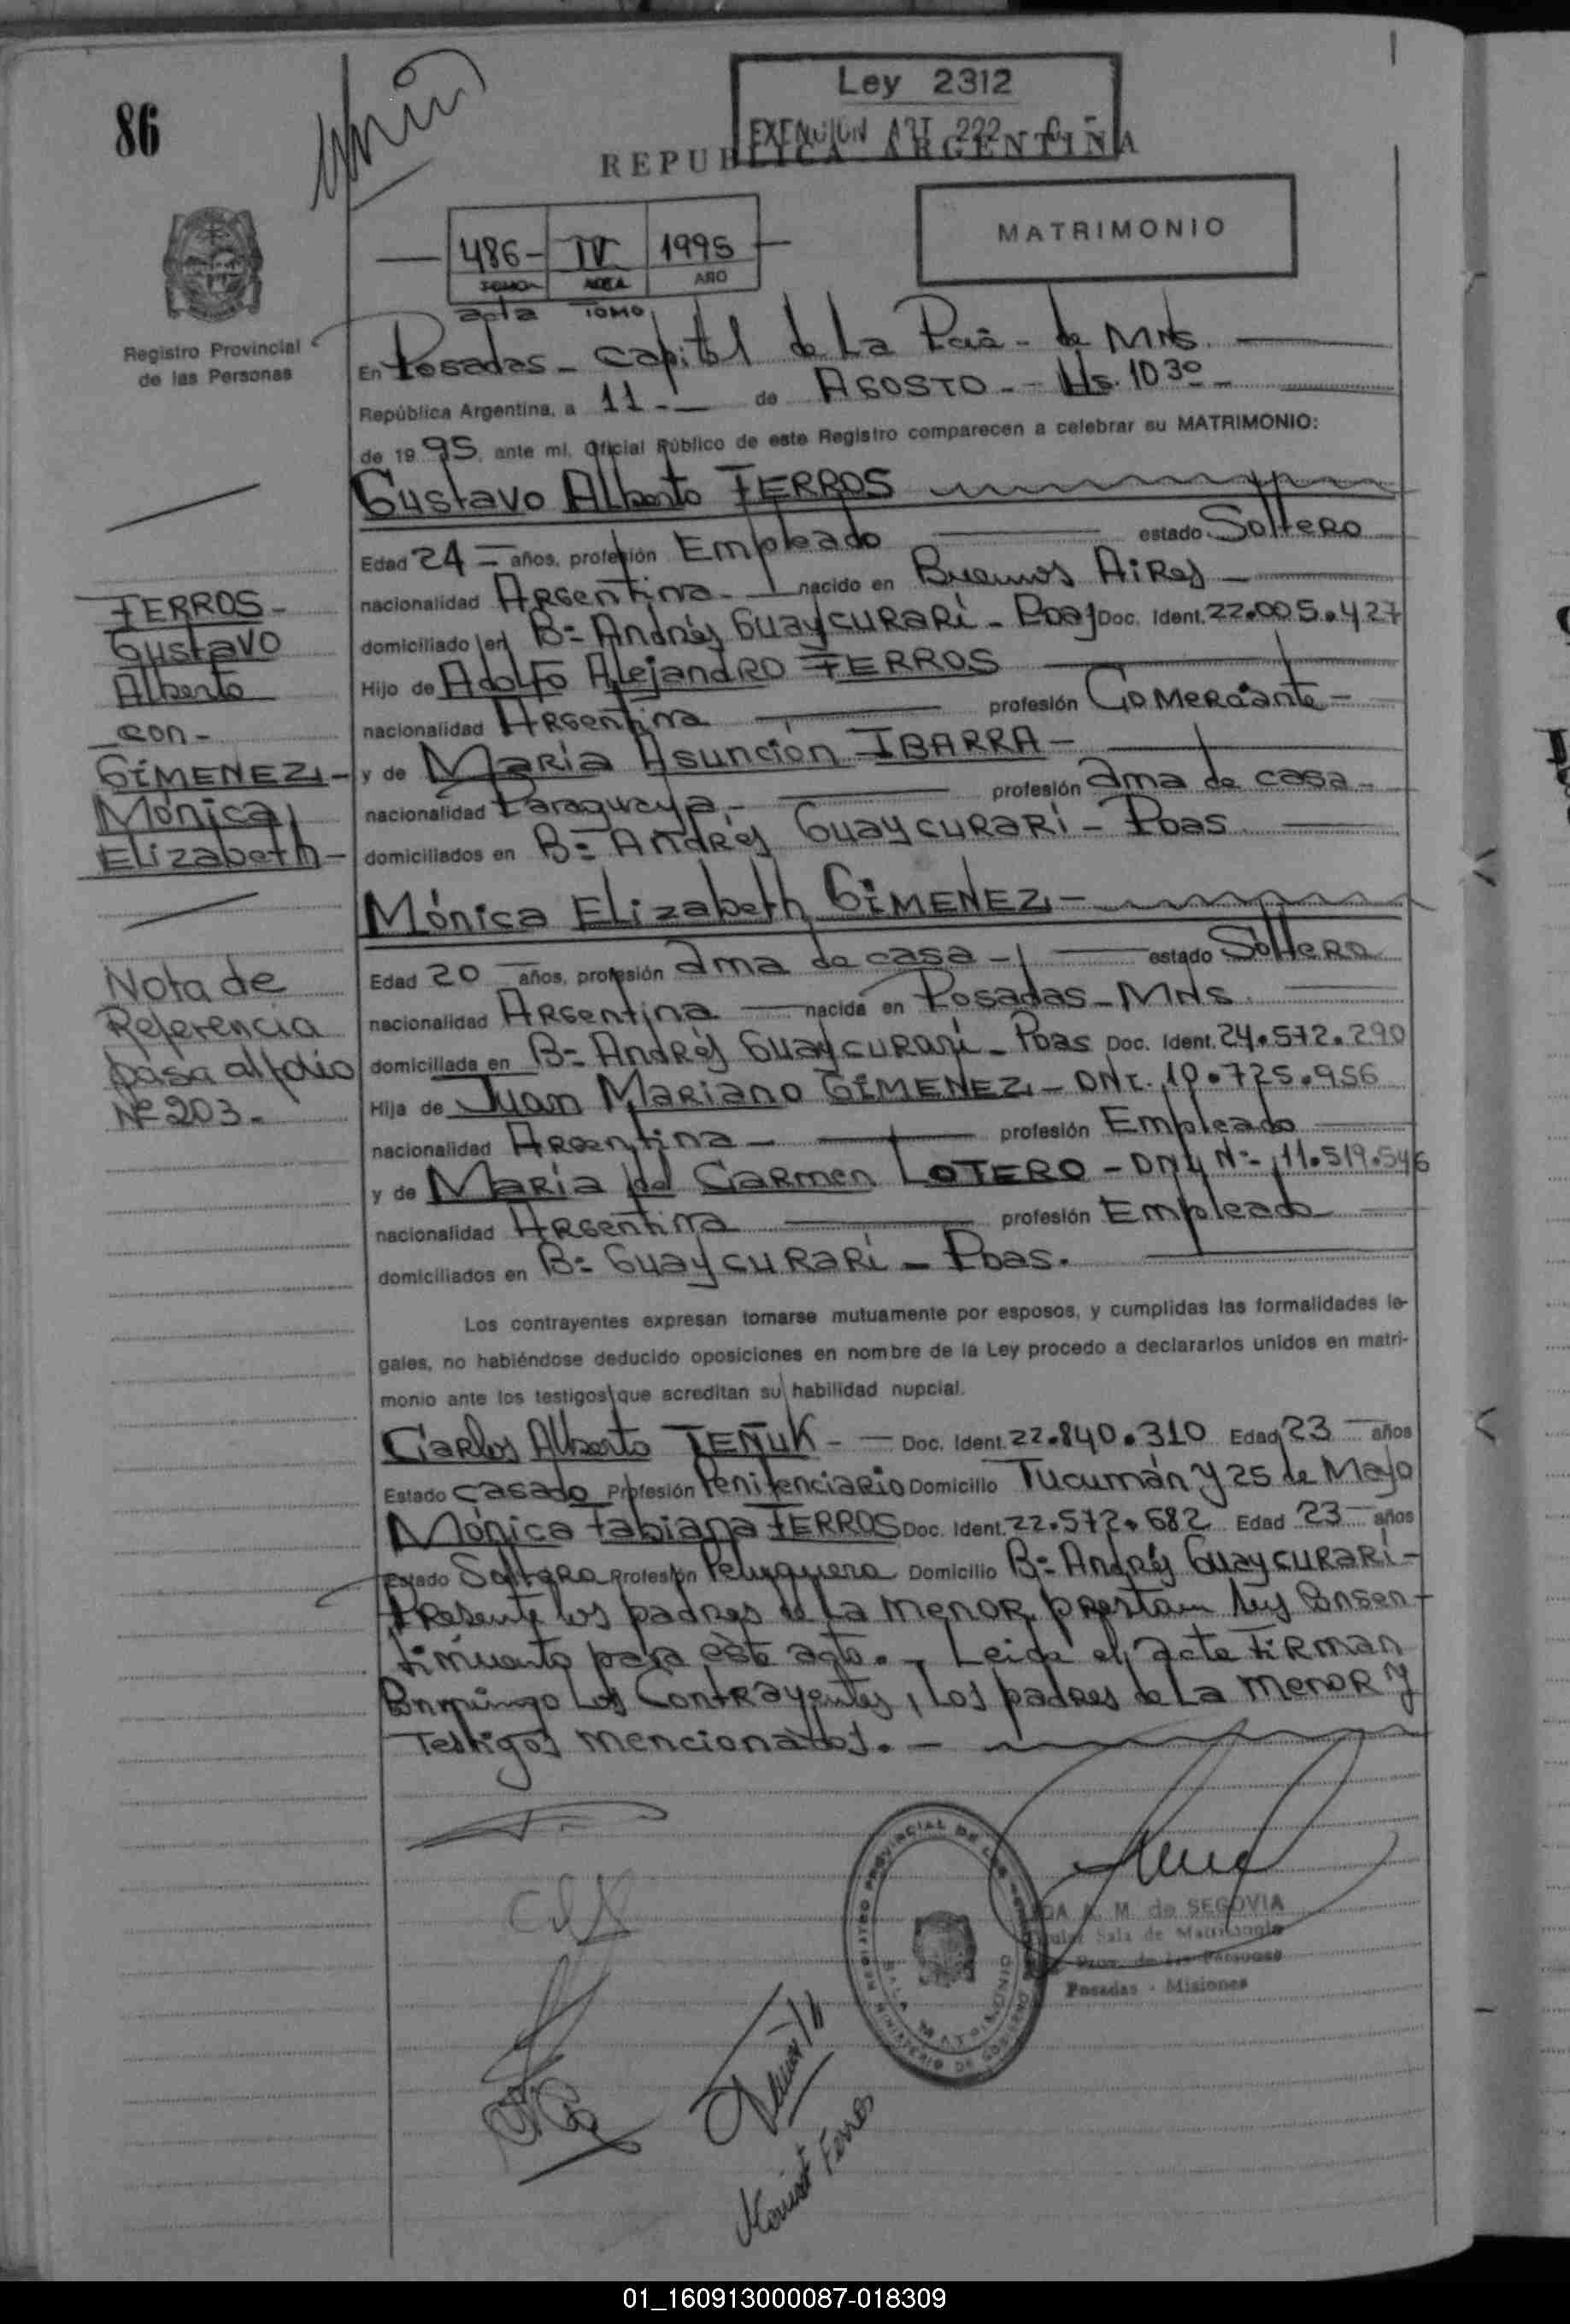 86
Ley 2312
EXENCION ART 222
REPUBLICA ARGENTINA
486- IV 1995
TOMO ACTA AÑO
acta TOMO
MATRIMONIO
Registro Provincial
de las Personas
En Posadas - Capital de La Pcia - de MNS.
República Argentina, a 11 - de AGOSTO - - Hs. 10 30 -
de 1995, ante mi, Oficial Público de este Registro comparecen a celebrar su MATRIMONIO:
Gustavo Alberto FERROS
Edad 24 - años, profesión Empleado estado Soltero
nacionalidad Argentina - nacido en Buenos Aires -
domiciliado en B= Andrés Guaycurarí - Pdas Doc. Ident. 22.005.427
Hijo de Adolfo Alejandro FERROS
nacionalidad Argentina profesión Comerciante -
y de María Asunción IBARRA -
nacionalidad Paraguaya - profesión ama de casa -
domiciliados en B= Andrés Guaycurarí - Pdas
FERROS -
Gustavo
Alberto
- con -
GIMENEZ, -
Mónica
Elizabeth -
Mónica Elizabeth GIMENEZ, -
Edad 20 - años, profesión ama de casa - estado Soltera
nacionalidad Argentina nacida en Posadas - MNS
domiciliada en B= Andrés Guaycurarí - Pdas Doc. Ident. 24.572.290
Hija de Juan Mariano GIMENEZ, - DNI. 10.725.956
nacionalidad Argentina - profesión Empleado
y de María del Carmen LOTERO - DNI Nº 11.519.546
nacionalidad Argentina profesión Empleado
domiciliados en B= Guaycurarí - Pdas.
Nota de
Referencia
pasa al folio
Nº 203 -
Los contrayentes expresan tomarse mutuamente por esposos, y cumplidas las formalidades le-
gales, no habiéndose deducido oposiciones en nombre de la Ley procedo a declararlos unidos en matri-
monio ante los testigos que acreditan su habilidad nupcial.
Carlos Alberto TEÑUK - - Doc. Ident. 22.840.310 Edad 23 - años
Estado casado Profesión Penitenciario Domicilio Tucumán y 25 de Mayo
Mónica Fabiana FERROS Doc. Ident. 22.572.682 Edad 23 - años
Estado Soltera Profesión Peluquera Domicilio B= Andrés Guaycurarí -
Presente los padres de La menor, prestam sus Consen-
timiento para éste acto. - Leida el acta Firman
Conmigo Los Contrayentes, Los padres de La menor y
Testigos mencionados. -
REGISTRO PROVINCIAL DE LAS PERSONAS
MINISTERIO DE GOBIERNO
SALA MATRIMONIO
M. de SEGOVIA
Sala de Matrimonio
Prov. de las Personas
Posadas - Misiones
Ferros
01_160913000087-018309